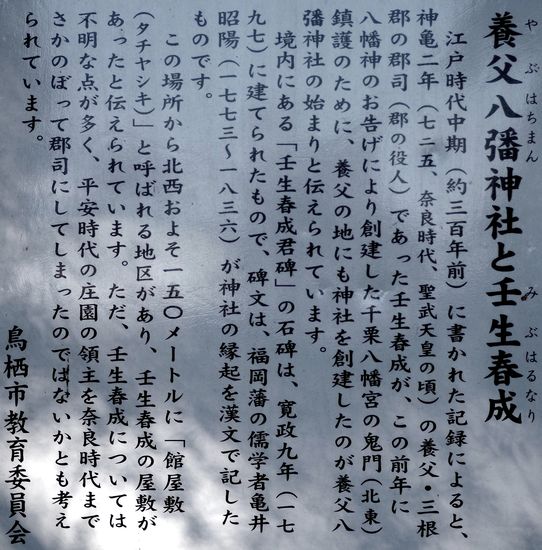 養父八彊神社と壬生春成
やぶはちまん
みぶはるなり
江戸時代中期（約三百年前）に書かれた記録によると、
神亀二年（七二五、奈良時代、聖武天皇の頃）の養父・三根
郡の郡司（郡の役人）であった壬生春成が、この前年に
八幡神のお告げにより創建した千栗八幡宮の鬼門（北東）
鎮護のために、養父の地にも神社を創建したのが養父八
彊神社の始まりと伝えられています。
境内にある「壬生春成君碑」の石碑は、寛政九年（一七
九七）に建てられたもので、碑文は、福岡藩の儒学者亀井
昭陽（一七七三～一八三六）が神社の縁起を漢文で記した
ものです。
この場所から北西およそ一五〇メートルに「館屋敷
（タチヤシキ）」と呼ばれる地区があり、壬生春成の屋敷が
あったと伝えられています。ただ、壬生春成については
不明な点が多く、平安時代の庄園の領主を奈良時代まで
さかのぼって郡司にしてしまったのではないかとも考え
られています。
鳥栖市教育委員会